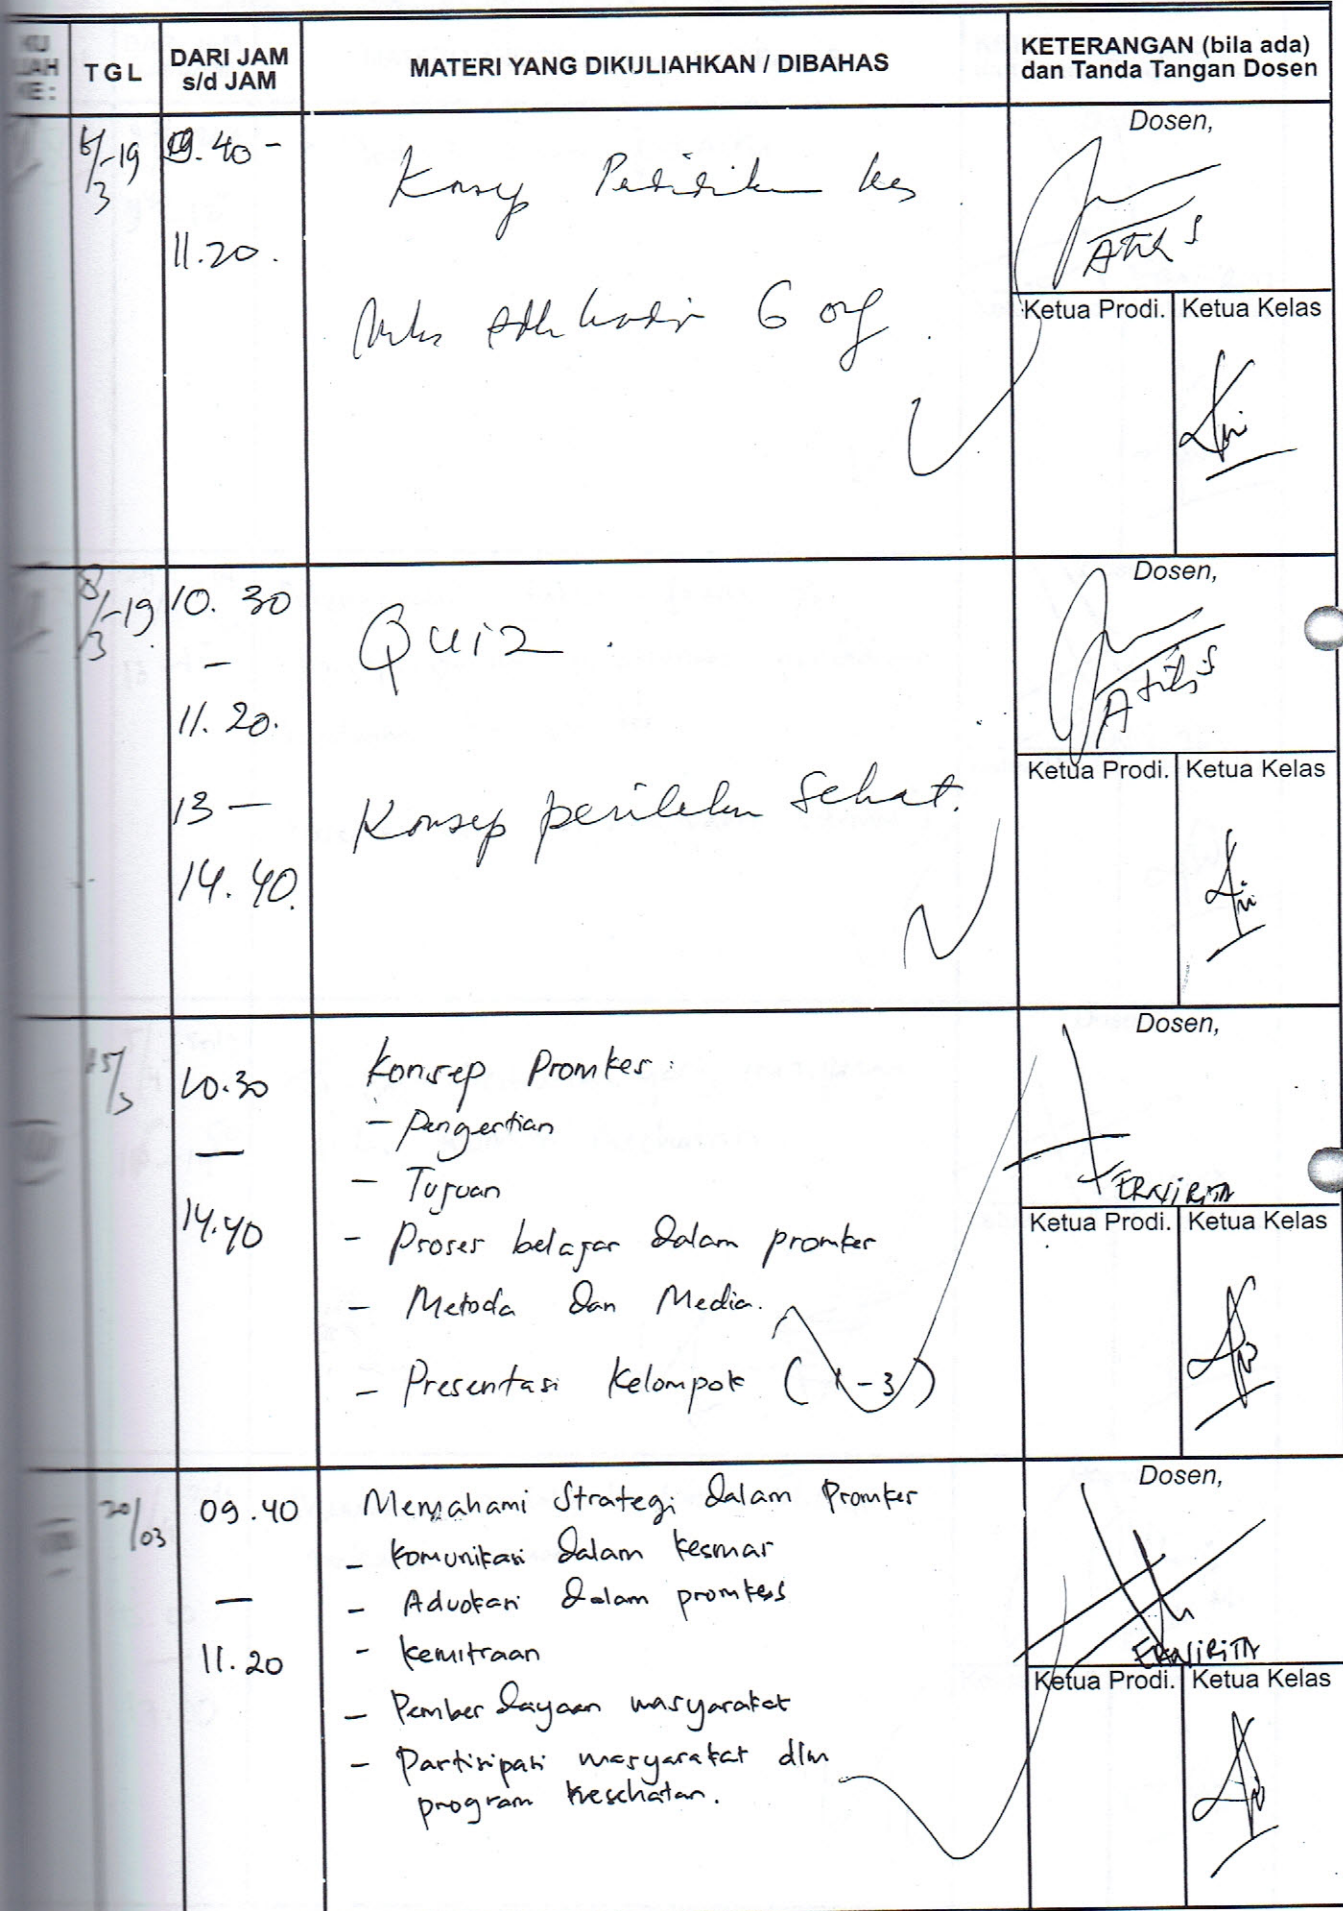 KU
LIAH
KE :
TGL
DARI JAM
s/d JAM
MATERI YANG DIKULIAHKAN / DIBAHAS
KETERANGAN (bila ada)
dan Tanda Tangan Dosen
6/3-19
09.40 -
11.20.
Konsep Pendidikan kes
hadir 6 org
Dosen,
Ketua Prodi.
Ketua Kelas
8/3-19
10. 30
-
11. 20.
13 -
14. 40.
Quiz.
Konsep perilaku Sehat.
Dosen,
Atik S
Ketua Prodi.
Ketua Kelas
15/3
10.30
-
14.40
Konsep Promkes :
- Pengertian
- Tujuan
- Proses belajar dalam promkes
- Metoda dan Media.
- Presentasi Kelompok ( 1 - 3 )
Dosen,
ERNIRITA
Ketua Prodi.
Ketua Kelas
20/03
09.40
-
11.20
Memahami Strategi dalam Promkes
- Komunikasi dalam kesmas
- Advokasi dalam promkes
- kemitraan
- Pemberdayaan masyarakat
- Partisipasi masyarakat dlm
program kesehatan.
Dosen,
ERNIRITA
Ketua Prodi.
Ketua Kelas